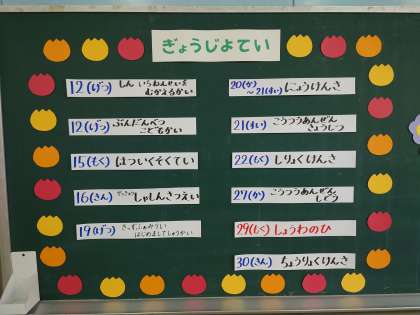 ぎょうじよてい
12(げつ) しん いちねんせいを
むかえるかい
12(げつ) ぶんだんべつ
こどもかい
15(もく) はついくそくてい
16(きん) しゃしんさつえい
19(げつ)
はじめましてしゅうかい
20(か)
～21(すい) にょうけんさ
21(すい) こうつうあんぜん
きょうしつ
22(もく) しりょくけんさ
27(か) こうつうあんぜん
しどう
29(もく) しょうわのひ
30(きん) ちょうりょくけんさ